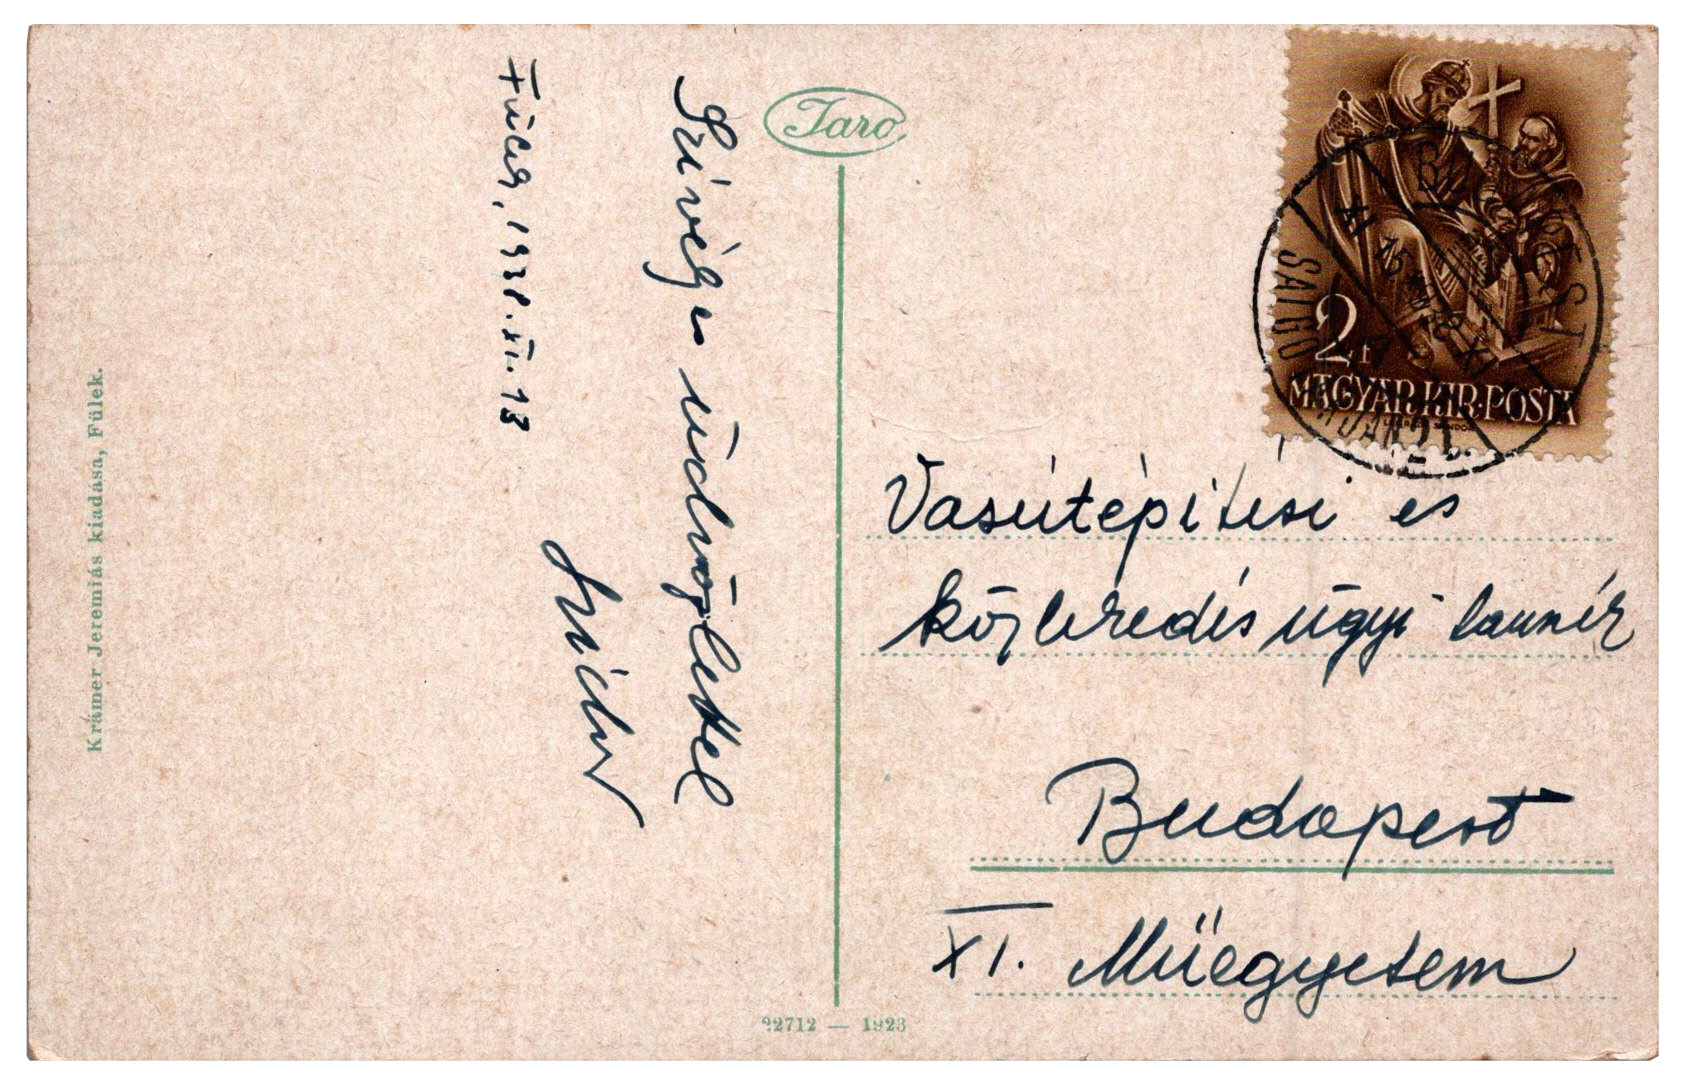 Fülek, 1938. XI. 13
Szívélyes üdvözlettel
Taro
Krámer Jeremiás kiadása, Fülek.
2f
MAGYAR KIR. POSTA
Vasútépítési és
közlekedésügyi tanszék
Budapest
XI. Műegyetem
22712 — 1923